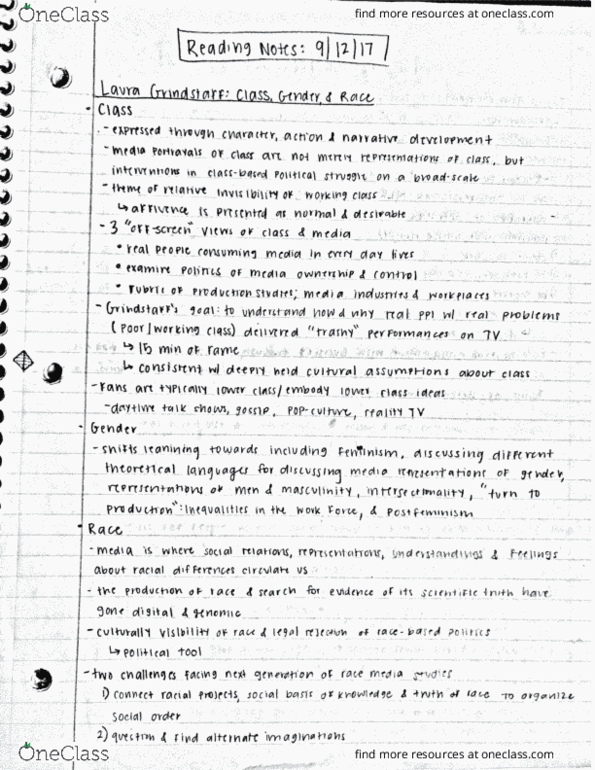 OneClass
find more resources at oneclass.com
Reading Notes: 9/12/17
Laura Grindstaff: Class, Gender, & Race
• Class
- expressed through character, action & narrative development
- media portrayals of class are not merely representations of class, but
interventions in class-based political struggle on a broad-scale
- theme of relative invisibility of working class
↳ affluence is presented as normal & desirable
- 3 "off-screen" views of class & media
• real people consuming media in every day lives
• examine politics of media ownership & control
• rubric of production studies; media industries & workplaces
- Grindstaff's goal: to understand how & why real ppl w/ real problems
(poor/working class) delivered "trashy" performances on TV
↳ 15 min of fame
↳ consistent w/ deeply held cultural assumptions about class
- Fans are typically lower class/embody lower class ideas
- daytime talk shows, gossip, pop-culture, reality TV
• Gender
- shifts leanining towards including feminism, discussing different
theoretical languages for discussing media representations of gender,
representations of men & masculinity, intersectionality, "turn to
production": inequalities in the work force, & postfeminism
• Race
- media is where social relations, representations, understandings & feelings
about racial differences circulate us
- the production of race & search for evidence of its scientific truth have
gone digital & genomic
- culturally visibility of race & legal rejection of race-based politics
↳ political tool
- two challenges facing next generation of race media studies
1) connect racial projects, social basis of knowledge & truth of race to organize
social order
2) question & find alternate imaginations
OneClass
find more resources at oneclass.com